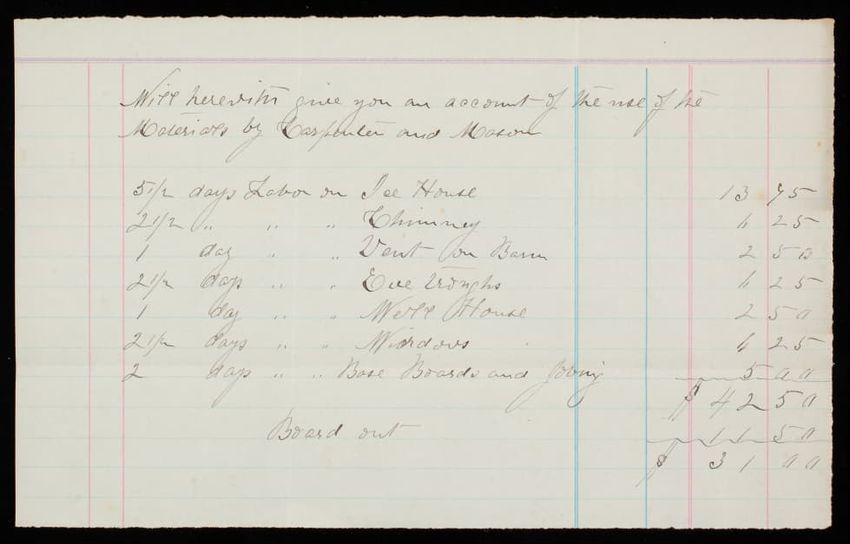 Will herewith give you an account of the use of the
Materials by Carpenter and Mason
5 1/2 days Labor on Ice House 13 75
2 1/2 " " " Chimney 6 25
1 day " " Vent on Barn 2 50
2 1/2 days " " Eve Troughs 6 25
1 day " " Well House 2 50
2 1/2 days " " Windows 6 25
2 days " " Base Boards and Jobing 5 00
$ 42 50
Board out 11 50
$ 31 00